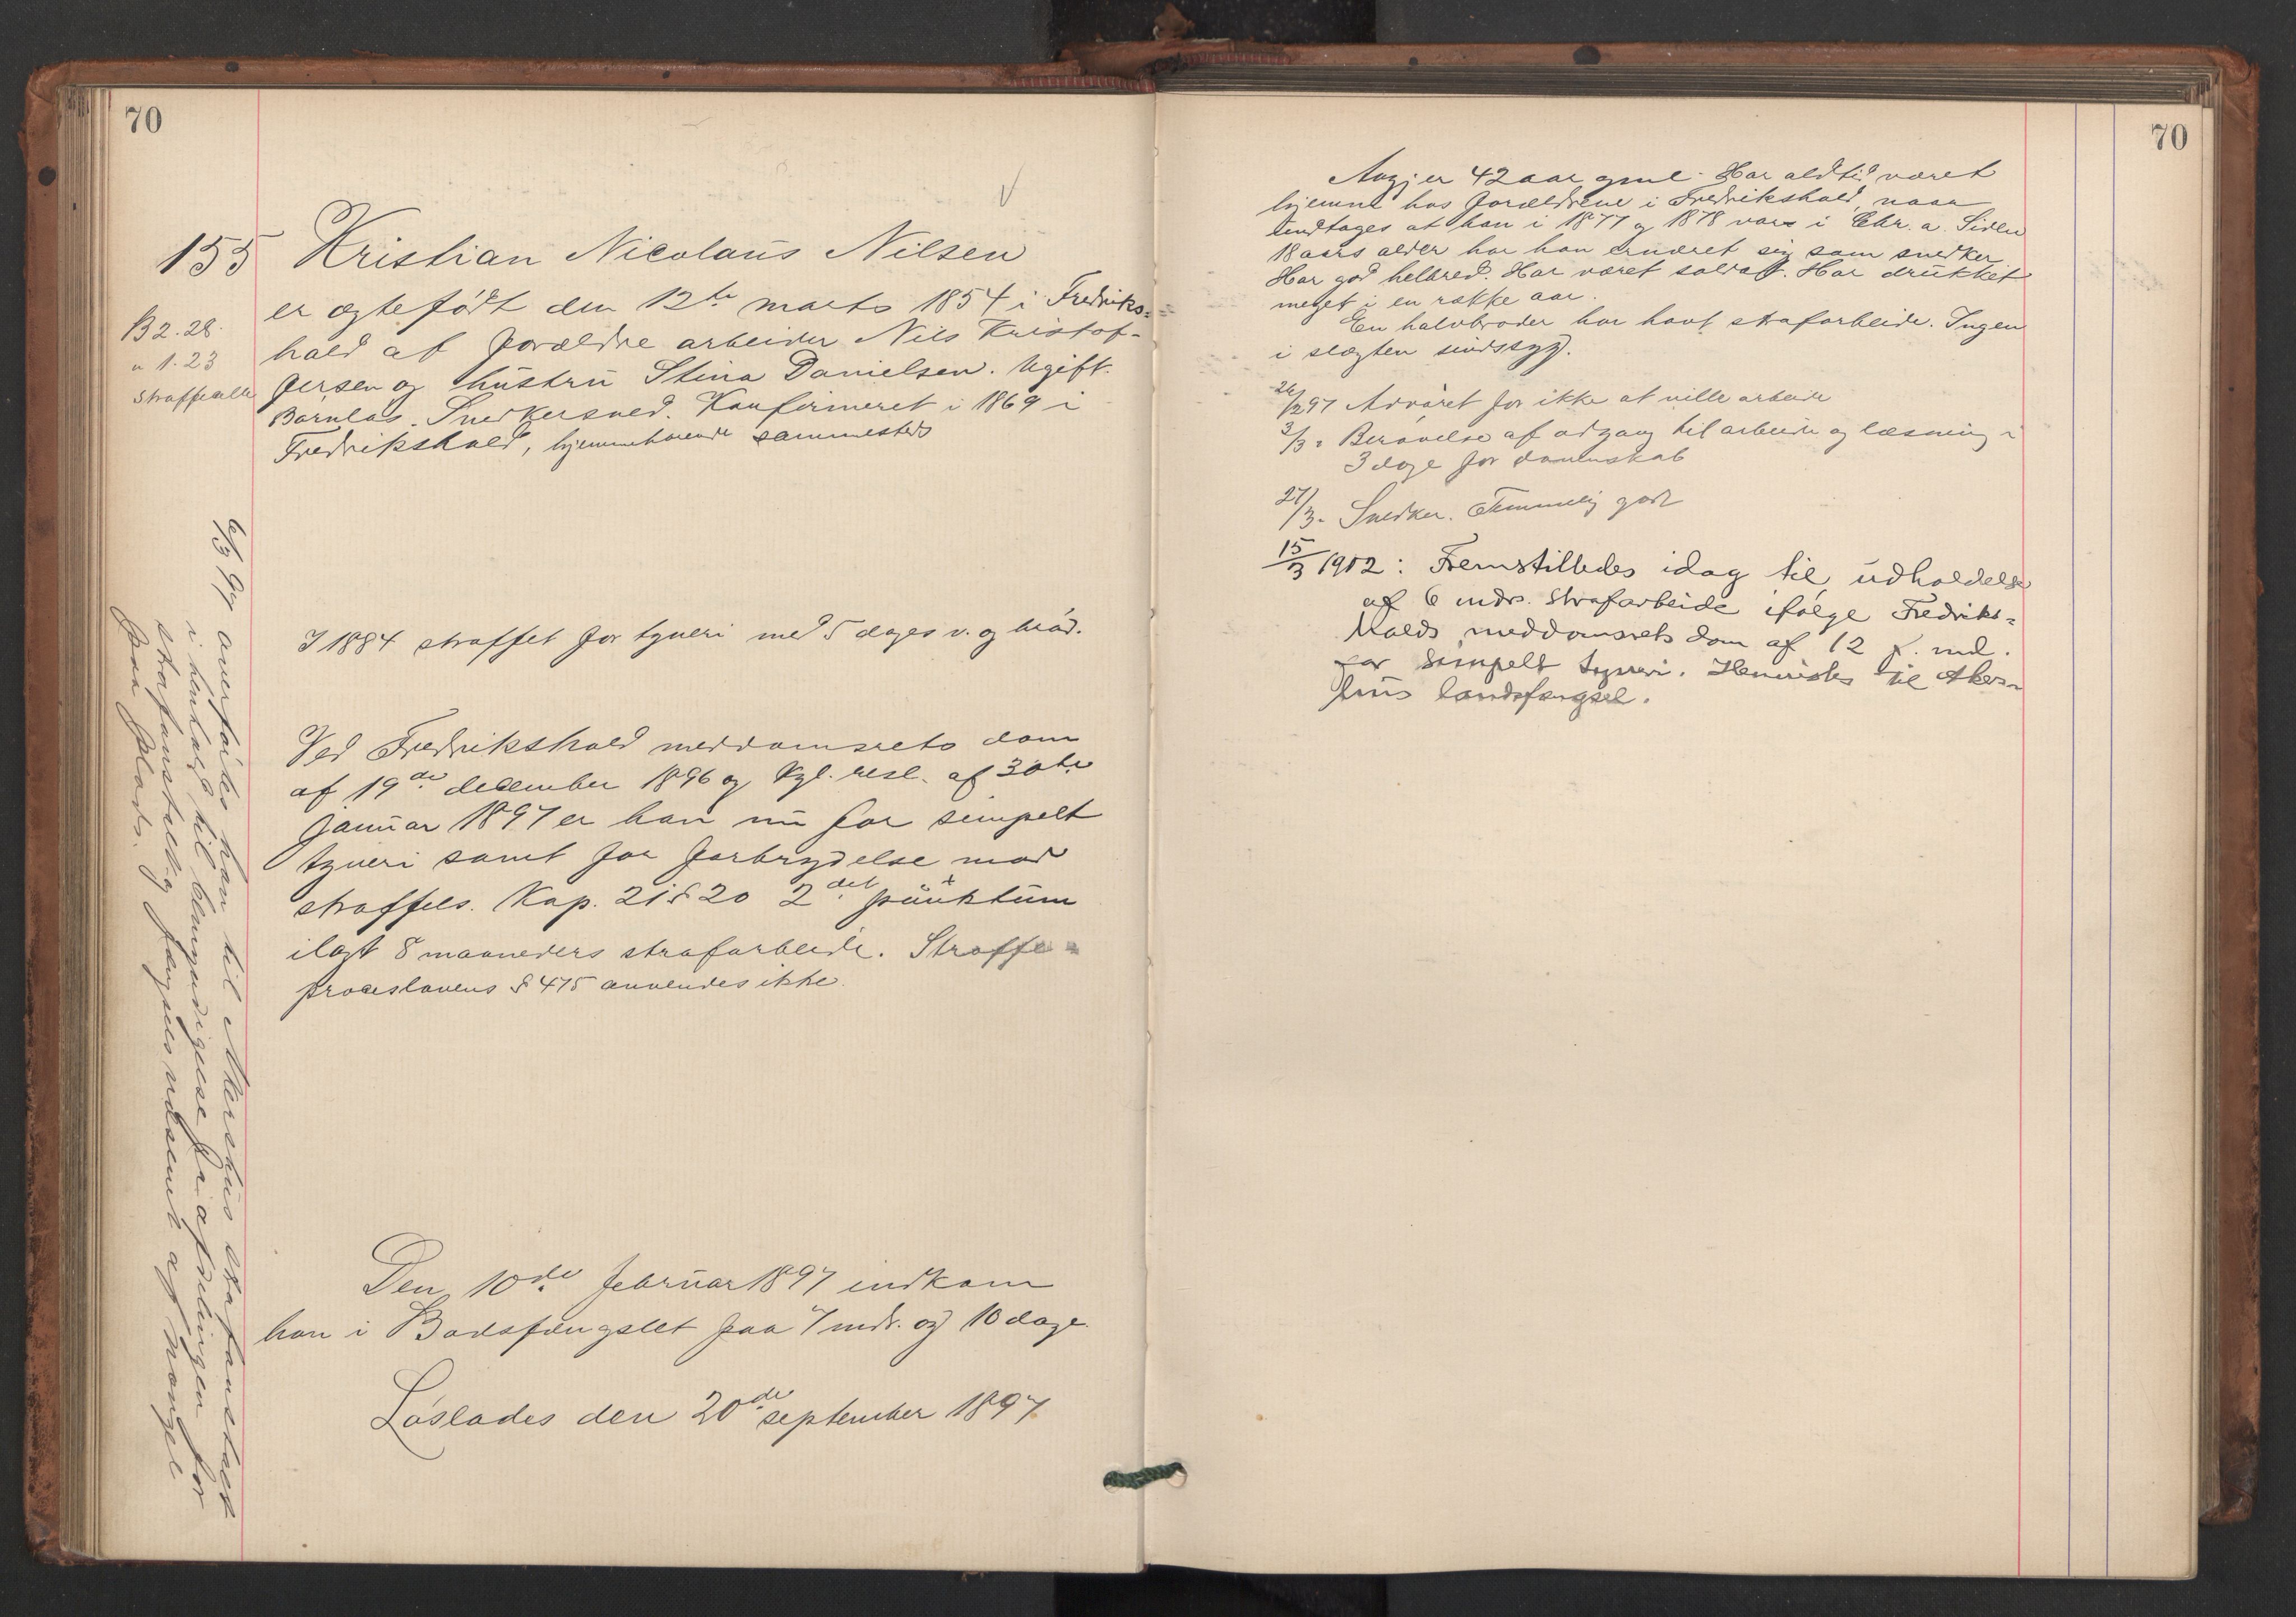 70
155 Kristian Nicolaus Nilsen
B 2. 28.
" 1. 23
straffeatt
er ægtefødt den 12te marts 1854 i Fredriks=
hald af forældre arbeider Nils Kristof-
fersen og hustru Stina Danielsen. Ugift.
Barnløs. Snedkersvend. Konfirmeret i 1869 i
Fredrikshald, hjemmehørende sammesteds
I 1884 straffet for tyveri med 5 dages v. og brød.
Ved Fredrikshald meddomsrets dom
af 19de december 1896 og Kgl. resl. af 30te
januar 1897 er han nu for simpelt
tyveri samt for forbrydelse mod
straffels. Kap. 21 § 20 2det punktum
ilagt 8 maaneders strafarbeide. Straffe=
proceslovens § 475 anvendes ikke.
Den 10de februar 1897 indkom
han i Bodsfængslet paa 7 mdr. og 10 dage.
Løslades den 20de september 1897
6/3 97 overføres han til Akershus strafanstalt
i henhold til bemyndigelse fra afdelingen for
strafanstalt og fængselsvæsenet af mangel
paa plads.
70
Angj. er 42 aar gml. Har altid været
hjemme hos forældrene i Fredrikshald, naar
undtages at han i 1877 og 1878 var i Chr.a. Siden
18 aars alder har han ernæret sig som snedker
Har god helbred. Har været soldat. Har drukket
meget i en række aar.
En halvbroder har havt strafarbeide. Ingen
i slægten sindssyg.
26/2 97 Advaret for ikke at ville arbeide
3/3 " Berøvelse af adgang til arbeide og læsning i
3 dage for dovenskab
27/3 - Snedker. Temmelig godt
15/3 1902: Fremstilledes idag til udholdelse
af 6 mdrs. strafarbeide ifølge Fredriks=
halds meddomsrets dom af 12 f. md.
for simpelt tyveri. Henvistes til Akers-
hus landsfængsel.